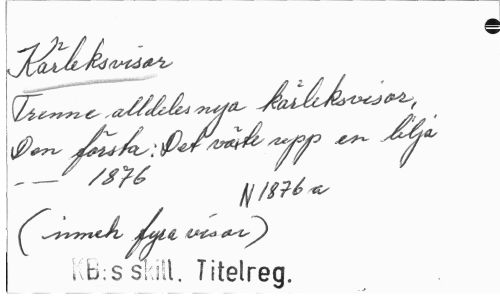 Kärleksvisor
Trenne alldeles nya kärleksvisor,
Den första: Det växte upp en lilja
- — 1876
N 1876 a
(inneh fyra visor)
KB:s skill. Titelreg.